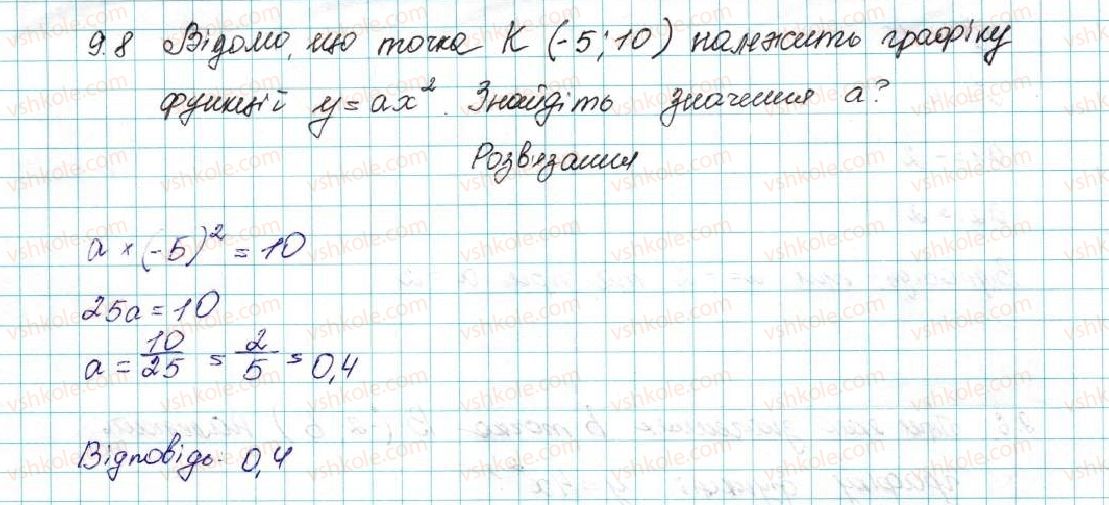 9.8 Відомо, що точка К (-5; 10) належить графіку
функції y = ax². Знайдіть значення a?
Розв'язання
a × (-5)² = 10
25a = 10
a = 10/25 = 2/5 = 0,4
Відповідь: 0,4